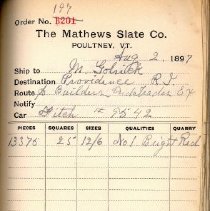 197
Order No. B201
The Mathews Slate Co.
POULTNEY, VT.
Aug 2 1897
Ship to
Destination Providence R I
Route
Notify
Car Fitch 9542
PIECES SQUARES SIZES QUALITIES QUARRY
13375 25 12/6 No 1 Bright Red